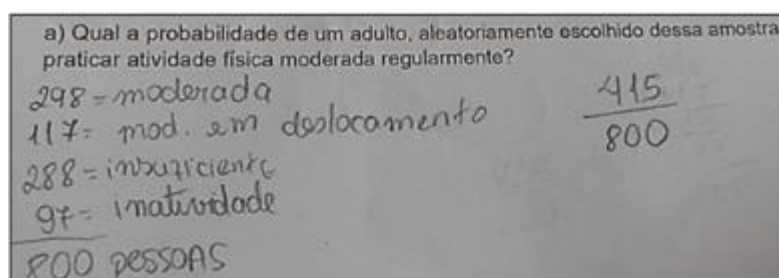 a) Qual a probabilidade de um adulto, aleatoriamente escolhido dessa amostra
praticar atividade física moderada regularmente?
298 = moderada
117 = mod. em deslocamento
288 = insuficiente
97 = inatividade
800 PESSOAS
415
800